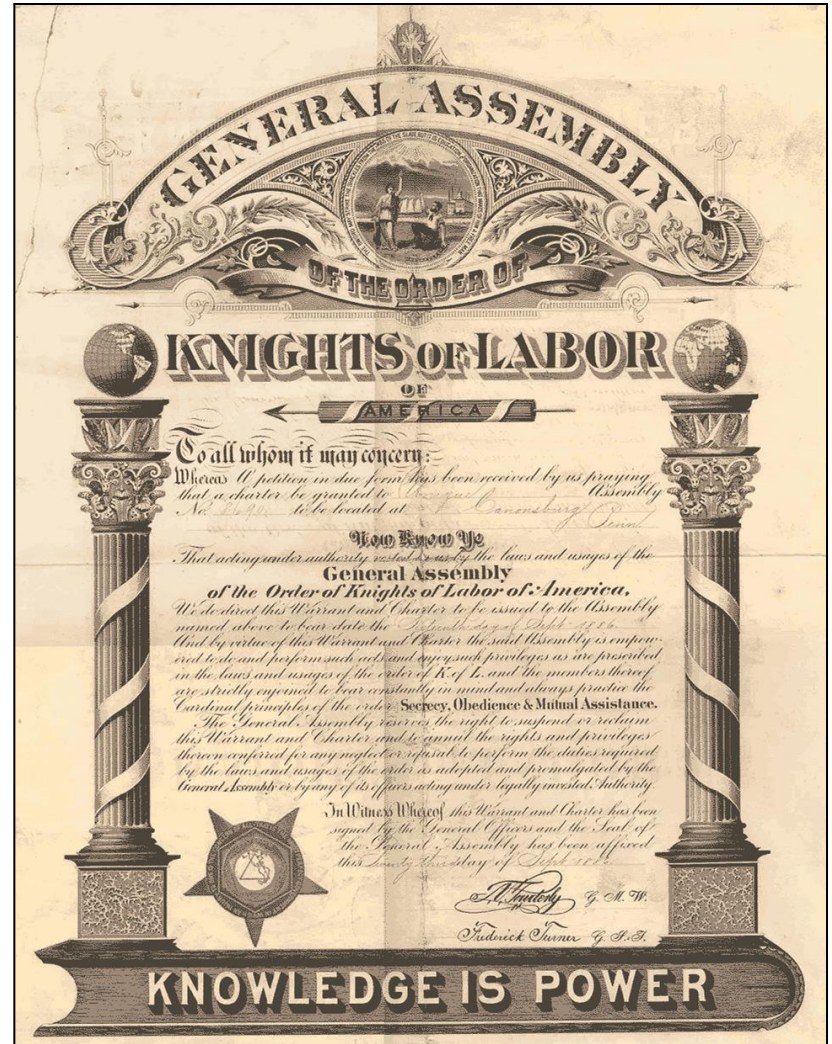 GENERAL ASSEMBLY
OF THE ORDER OF
KNIGHTS OF LABOR
OF
AMERICA
To all whom it may concern:
Whereas A petition in due form has been received by us praying
that a charter be granted to Assembly
No. to be located at Canonsburg
Penn
Now Know Ye
That acting under authority vested in us by the laws and usages of the
General Assembly
of the Order of Knights of Labor of America,
We do direct this Warrant and Charter to be issued to the Assembly
named above to bear date the fifteenth day of Sept 1886
And by virtue of this Warrant and Charter the said Assembly is empow-
ered to do and perform such acts and enjoy such privileges as are prescribed
in the laws and usages of the order of K. of L. and the members thereof
are strictly enjoined to bear constantly in mind and always practice the
Cardinal principles of the order Secrecy, Obedience & Mutual Assistance.
The General Assembly reserves the right to suspend or reclaim
this Warrant and Charter and to annul the rights and privileges
thereon conferred for any neglect or refusal to perform the duties required
by the laws and usages of the order as adopted and promalgated by the
General Assembly or by any of its officers acting under legally invested Authority.
In Witness Whereof this Warrant and Charter has been
signed by the General Officers and the Seal of
the General Assembly has been affixed
this twenty third day of Sept 1886
T. V. Powderly G. M. W.
Frederick Turner G. S. T.
KNOWLEDGE IS POWER